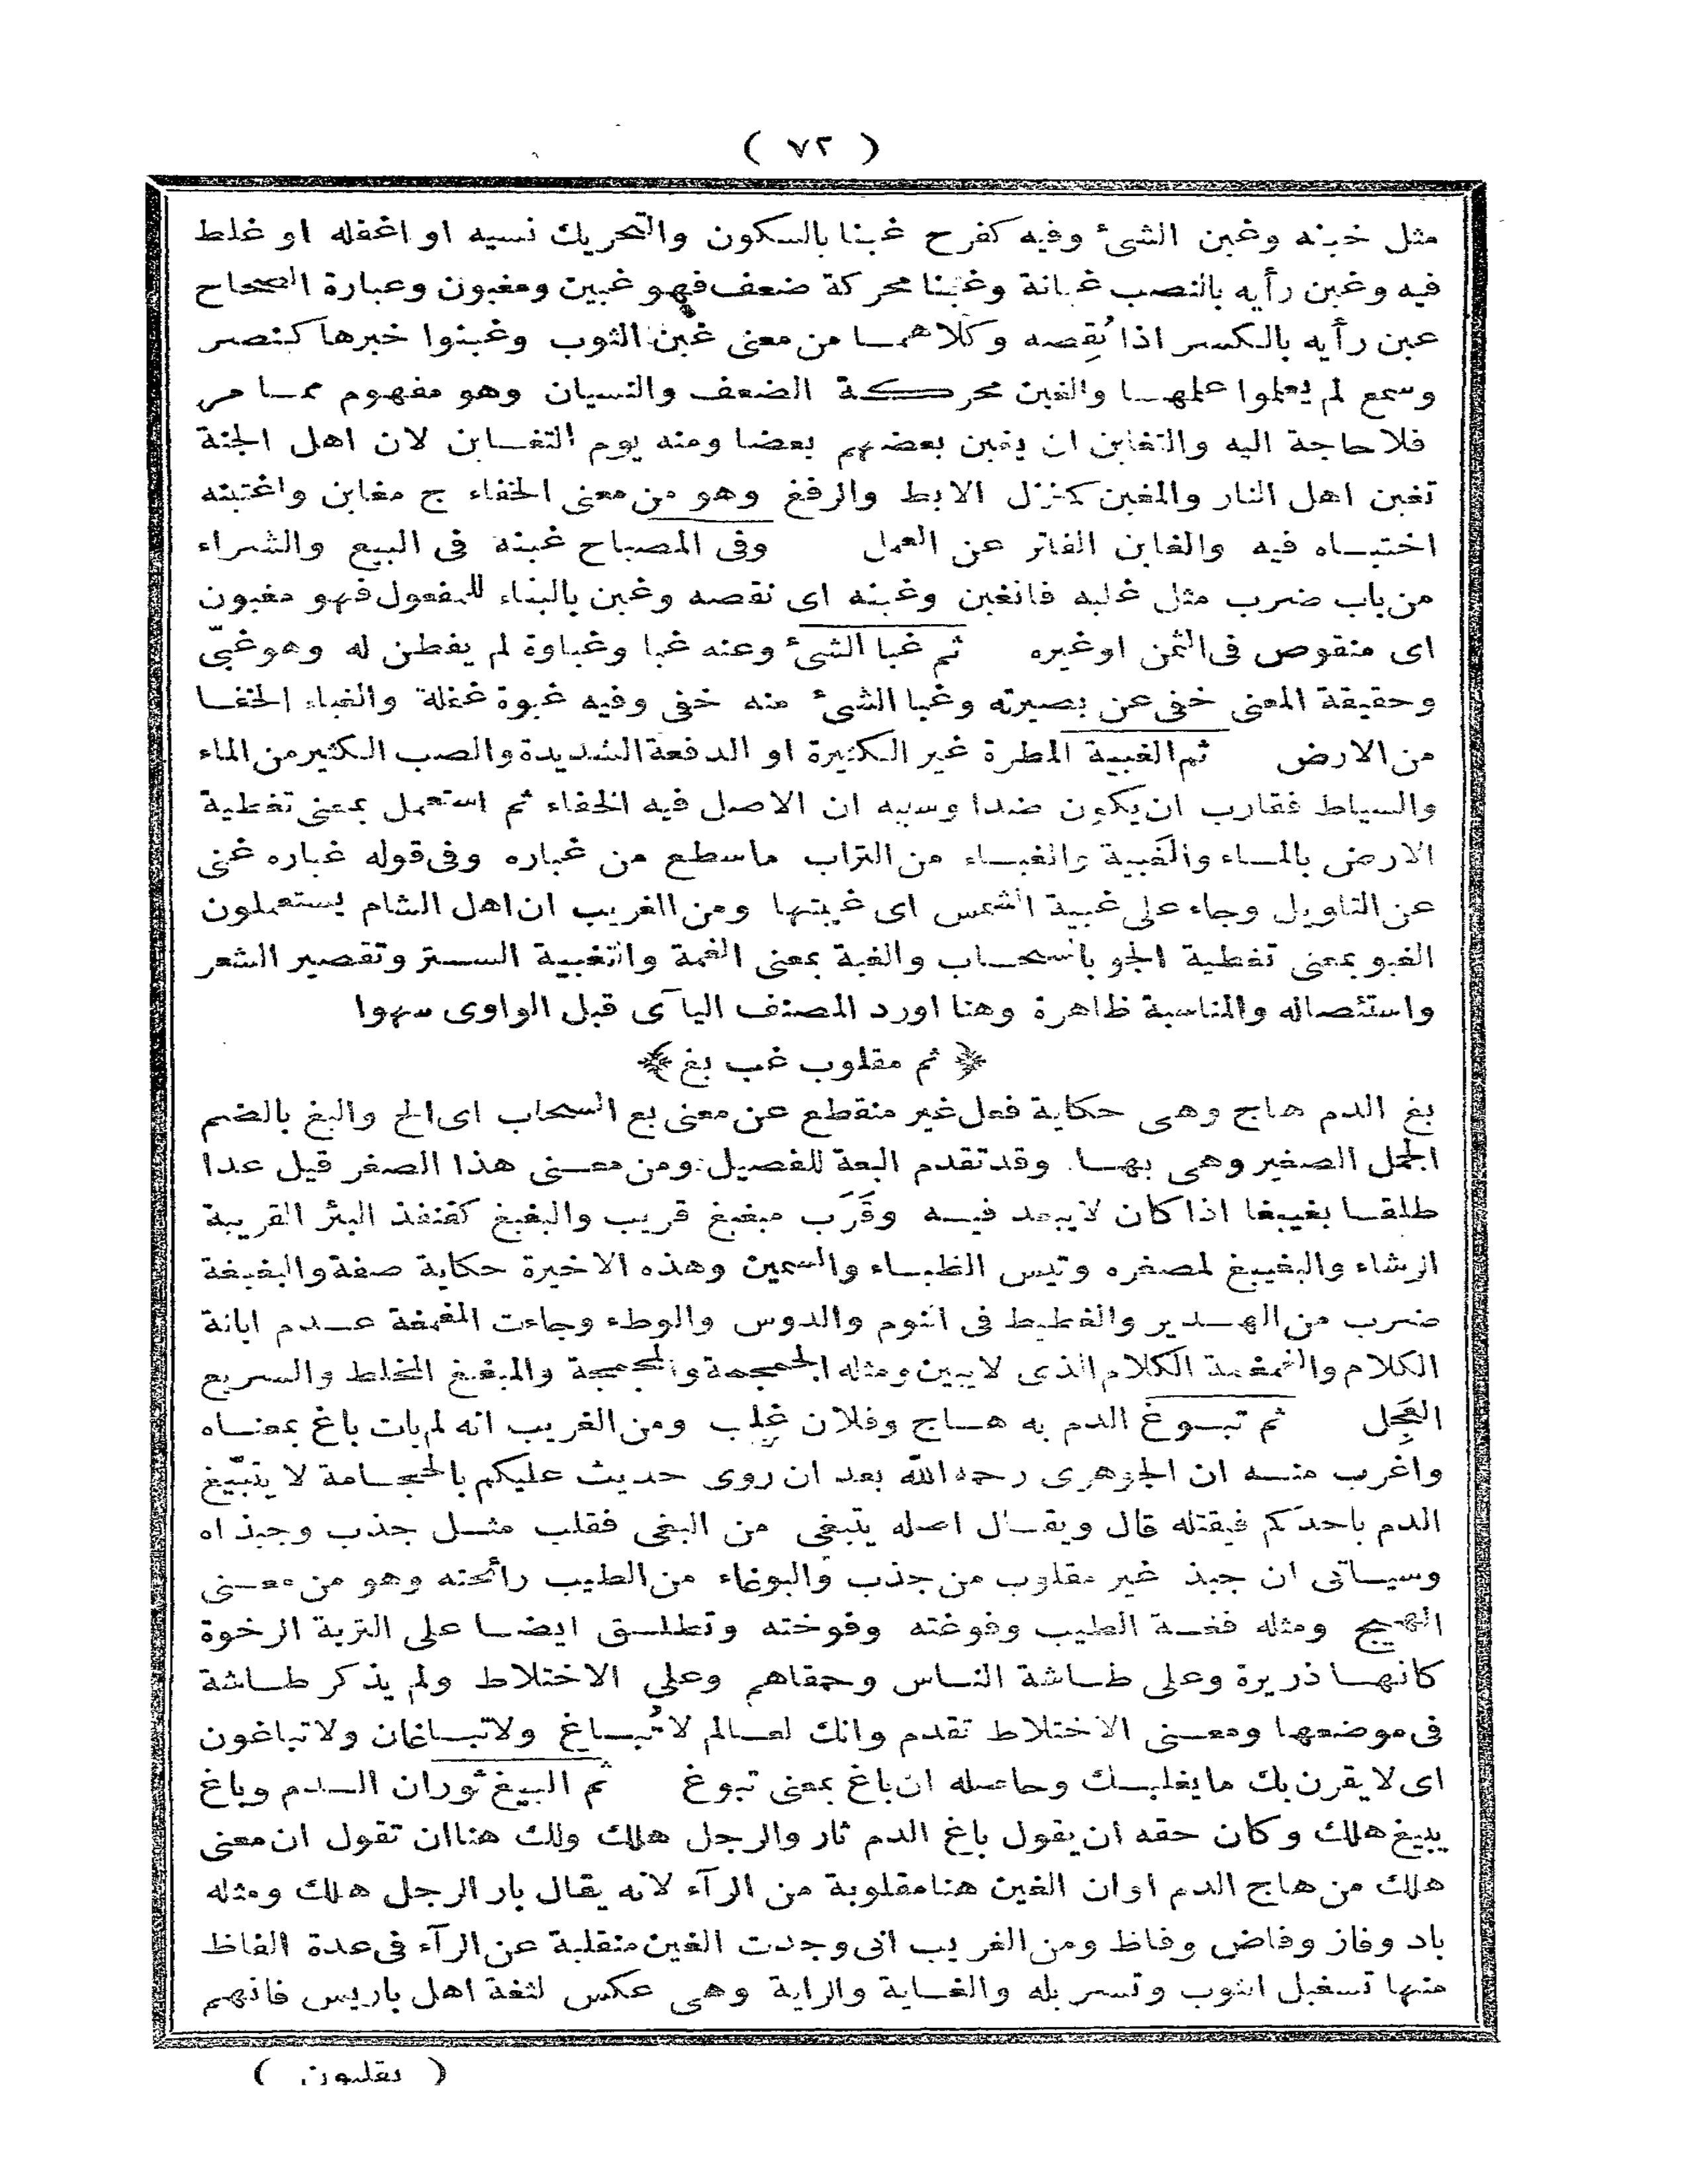 ( ٧٢ )
مثل خبنه وغبن الشئ وفيه كفرح غبنا بالسكون والتحريك نسيه او اغفله او غلط
فيه وغبن رأيه بالنصب غبانة وغبنا محركة ضعف فهو غبين ومغبون وعبارة الصحاح
عبن رأيه بالكسر اذا نُقِصه وكلاهما من معنى غبن الثوب وغبنوا خبرها كنصر
وسمع لم يعلموا علمها والغبن محركة الضعف والنسيان وهو مفهوم مما مر
فلا حاجة اليه والتغابن ان يغبن بعضهم بعضا ومنه يوم التغابن لان اهل الجنة
تغبن اهل النار والمغبن كمنزل الابط والرفغ وهو من معنى الخفاء ج مغابن واغتبنه
اختباه فيه والغابن الفاتر عن العمل وفى المصباح غبنه فى البيع والشراء
من باب ضرب مثل غلبه فانغبن وغبنه اى نقصه وغبن بالبناء للمفعول فهو مغبون
اى منقوص فى الثمن اوغيره ثم غبا الشئ وعنه غبا وغباوة لم يفطن له وهو غبىّ
وحقيقة المعنى خفى عن بصيرته وغبا الشئ منه خفى وفيه غبوة غفلة والغباء الخفا
من الارض ثم الغبية المطرة غير الكثيرة او الدفعة الشديدة والصب الكثير من الماء
والسياط فقارب ان يكون ضدا وسببه ان الاصل فيه الخفاء ثم استعمل بمعنى تغطية
الارض بالماء والغَبية والغباء من التراب ماسطع من غباره وفى قوله غباره غنى
عن التاويل وجاء على غبية الشمس اى غيبتها ومن الغريب ان اهل الشام يستعملون
الغبو بمعنى تغطية الجو بالسحاب والغبة بمعنى الغمة والتغبية الستر وتقصير الشعر
واستئصاله والمناسبة ظاهرة وهنا اورد المصنف اليآى قبل الواوى سهوا
﴿ ثم مقلوب غب بغ ﴾
بغ الدم هاج وهى حكاية فعل غير منقطع عن معنى بع السحاب اى الح والبغ بالضم
الجمل الصغير وهى بها. وقد تقدم البعة للفصيل ومن معنى هذا الصغر قيل عدا
طلقا بغيبغا اذا كان لا يبعد فيه وقَرَب مبغبغ قريب والبغبغ كقنفذ البئر القريبة
الرشاء والبغيبغ لمصغره وتيس الظباء والسمين وهذه الاخيرة حكاية صفة والبغبغة
ضرب من الهدير والغطيط فى النوم والدوس والوطء وجاءت المغمغة عدم ابانة
الكلام والغمغمة الكلام الذى لا يبين ومثله الجمجمة والمجمجة والمبغبغ المخلط والسريع
العَجِل ثم تبوغ الدم به هاج وفلان غلب ومن الغريب انه لم يات باغ بمعناه
واغرب منه ان الجوهرى رحمه الله بعد ان روى حديث عليكم بالحجامة لا يتبيّغ
الدم باحدكم فيقتله قال ويقال اصله يتبغى من البغى فقلب مثل جذب وجبذ اه
وسياتى ان جبذ غير مقلوب من جذب والبوغاء من الطيب رائحته وهو من معنى
الهيج ومثله فغمة الطيب وفوغته وفوخته وتطلق ايضا على التربة الرخوة
كانها ذريرة وعلى طاشة الناس وحمقاهم وعلى الاختلاط ولم يذكر طاشة
فى موضعها ومعنى الاختلاط تقدم وانك لعالم لا تُباغ ولا تباغان ولا تباغون
اى لا يقرن بك ما يغلبك وحاصله ان باغ بمعنى تبوغ ثم البيغ ثوران الدم وباغ
يبيغ هلك وكان حقه ان يقول باغ الدم ثار والرجل هلك ولك هنا ان تقول ان معنى
هلك من هاج الدم او ان الغين هنا مقلوبة من الرآء لانه يقال بار الرجل هلك ومثله
باد وفاز وفاض وفاظ ومن الغريب انى وجدت الغين منقلبة عن الرآء فى عدة الفاظ
منها تسغبل الثوب وتسربله والغاية والراية وهى عكس لثغة اهل باريس فانهم
( يقلبون )